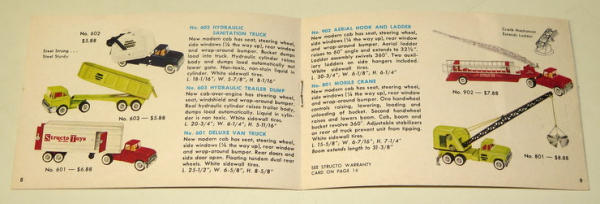 No. 602
$3.88
Steel Strong . . .
Steel Sturdy
No. 603 — $5.88
Structo Toys
No. 601 — $6.88
8
No. 602 HYDRAULIC
SANITATION TRUCK
New modern cab has seat, steering wheel,
side windows (¼ the way up), rear window
and wrap-around bumper. Bucket dumps
load into truck. Hydraulic cylinder raises
body and dumps load automatically out
lower gate. Non-toxic, non-stain liquid in
cylinder. White sidewall tires.
No. 603 HYDRAULIC TRAILER DUMP
New cab-over-engine has steering wheel,
seat, windshield and wrap-around bumper.
Real hydraulic cylinder raises trailer body,
dumps load automatically. Liquid in cylinder
is non toxic. White sidewall tires.
L 20-3/4", W 6-1/4", H 5-11/16"
No. 601 DELUXE VAN TRUCK
New modern cab has seat, steering wheel,
side windows (¼ the way up), rear window
and wrap-around bumper. Rear doors and
side door open. Floating tandem dual rear
wheels. White sidewall tires.
L 25-1/2", W 6-5/8", H 8-5/8"
No. 902 AERIAL HOOK AND LADDER
New modern cab has seat, steering wheel,
side windows (¼ the way up), rear window
and wrap-around bumper. Aerial ladder
raises to 60° angle and extends to 32½".
Ladder assembly swivels 360°. Two auxiliary
ladders on side hangers included.
White sidewall tires.
L 30-3/4", W 6-1/8", H 6-1/4"
No. 801 MOBILE CRANE
New modern cab has seat, steering wheel,
side windows (¼ the way up), rear window
and wrap-around bumper. One handwheel
controls raising, lowering, loading and
unloading of bucket. Second handwheel
raises and lowers boom. Cab, boom and
bucket revolve 360°. Adjustable stabilizers
on rear of truck prevent unit from tipping.
White sidewall tires.
L 15-5/8", W 6-7/16", H 7-1/4"
Boom extends length to 31-3/8"
SEE STRUCTO WARRANTY
CARD ON PAGE 14
Crank Mechanism
Extends Ladder
No. 902 — $7.88
No. 801 — $8.88
9